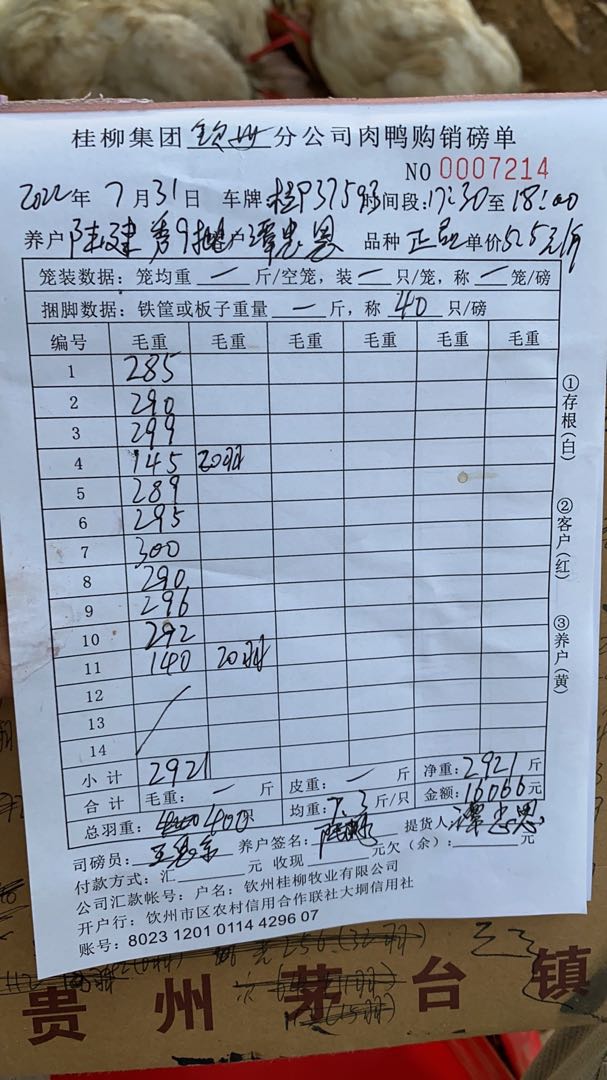 桂柳集团 钦州 分公司肉鸭购销磅单
NO 0007214
2022 年 7 月 31 日 车牌:桂P375 时间段:17:30 至 18:00
养户 陆建秀 客户 谭忠恩 品种 正品 单价 5.5元/斤
笼装数据: 笼均重 一 斤/空笼, 装 一 只/笼, 称 一 笼/磅
捆脚数据: 铁筐或板子重量 一 斤, 称 40 只/磅
编号 毛重 毛重 毛重 毛重 毛重 毛重
1 285
2 290
3 299
4 145 20羽
5 289
6 295
7 300
8 290
9 296
10 292
11 140 20羽
12
13
14
小计 2921 净重: 2921 斤
合计 毛重: 一 斤 皮重: 一 斤 金额: 16066 元
总羽重: 400只 均重: 7.3 斤/只
司磅员: 养户签名: 提货人: 谭忠恩
付款方式: 汇 元 收现 元欠(余): 元
公司汇款帐号: 户名: 钦州桂柳牧业有限公司
开户行: 钦州市区农村信用合作联社大垌信用社
账号: 8023 1201 0114 4296 07
①存根(白)
②客户(红)
③养户(黄)
贵州茅台镇